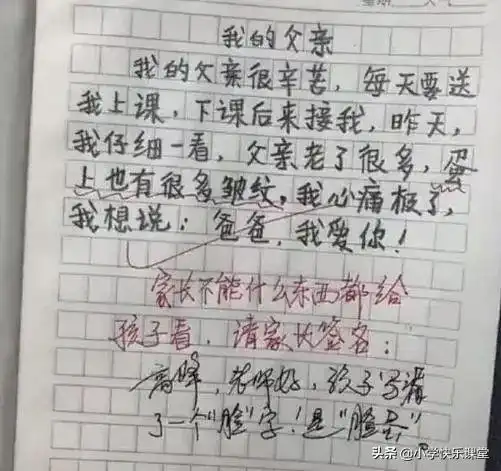 我的父亲
我的父亲很辛苦，每天要送
我上课，下课后来接我，昨天，
我仔细一看，父亲老了很多，蛋
上也有很多皱纹，我心痛极了，
我想说：爸爸，我爱你！
家长不能什么东西都给
孩子看，请家长签名：
高峰，老师好，孩子写漏
了一个"脸"字！是"脸蛋"
头条 @小学快乐课堂